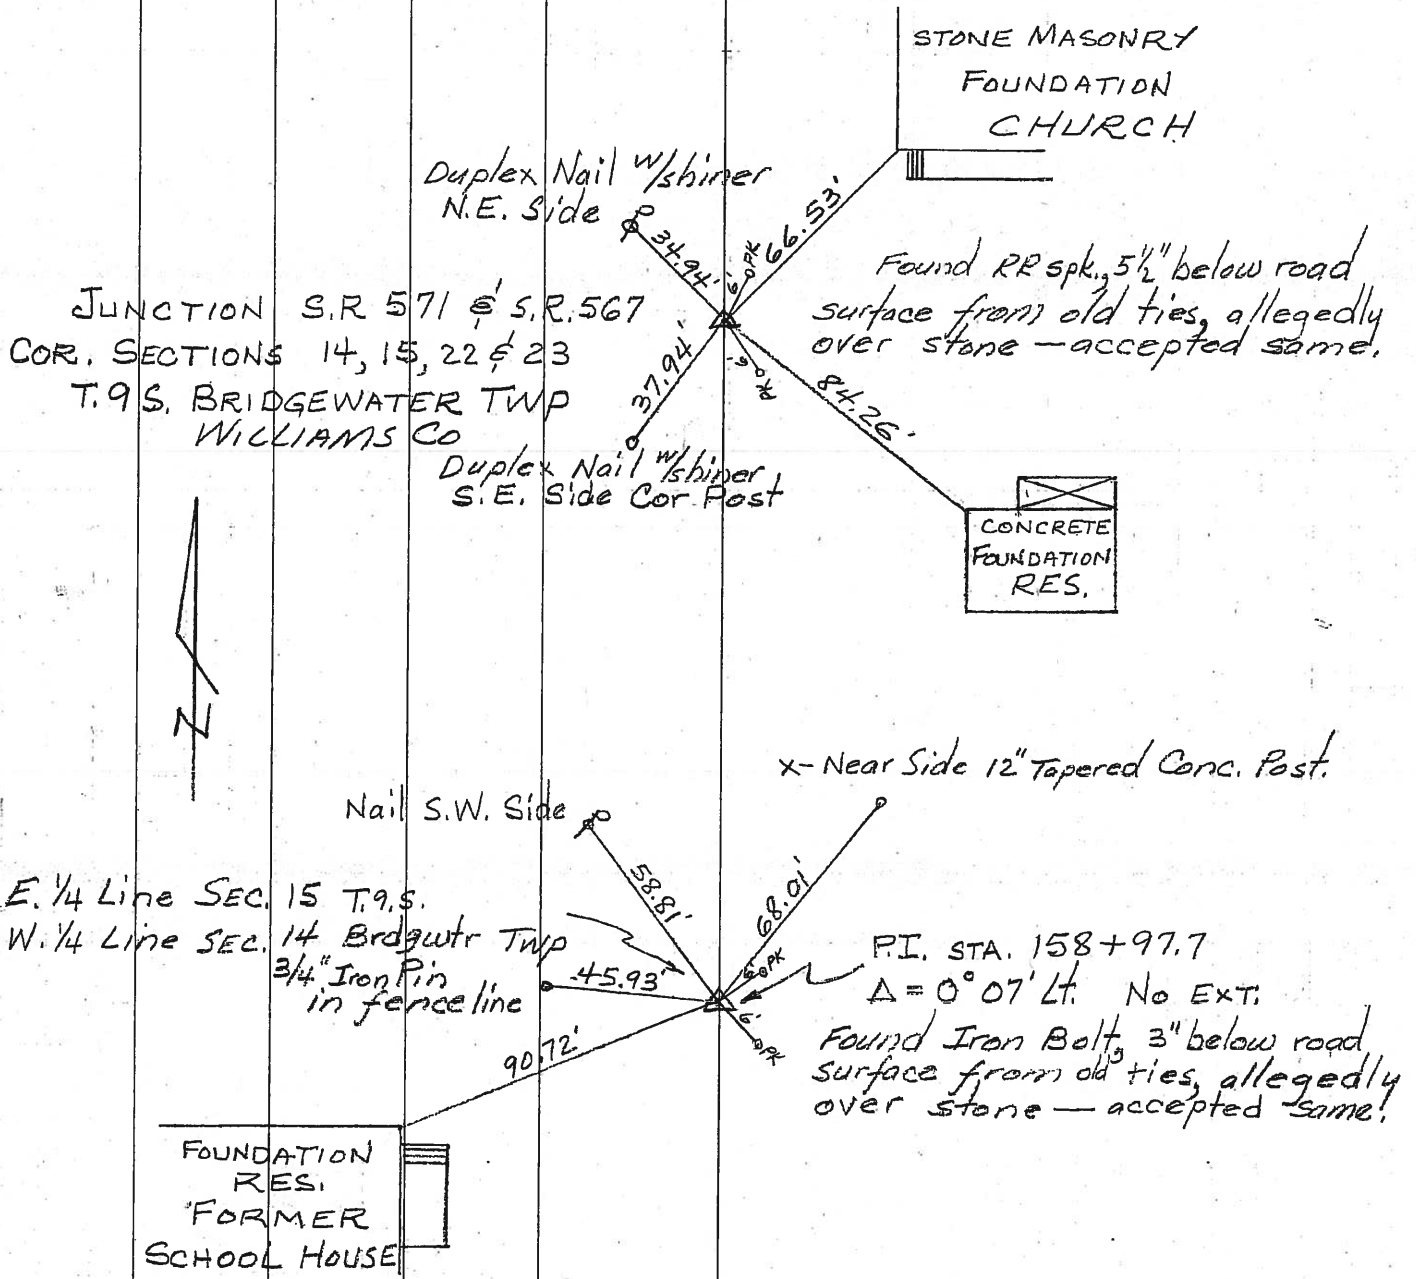 STONE MASONRY
FOUNDATION
CHURCH
Duplex Nail w/shiner
N.E. Side
34.94'
6' PK
66.53'
Found RR spk., 5½" below road
surface from old ties, allegedly
over stone — accepted same.
JUNCTION S.R 571 & S.R. 567
COR. SECTIONS 14, 15, 22 & 23
T.9S. BRIDGEWATER TWP
WILLIAMS CO
37.94'
6' PK
84.26'
Duplex Nail w/shiner
S.E. Side Cor Post
CONCRETE
FOUNDATION
RES.
N
x- Near Side 12" Tapered Conc. Post.
Nail S.W. Side
58.81'
68.01'
E. 1/4 Line SEC. 15 T.9.S.
W. 1/4 Line SEC. 14 Brdgwtr Twp
3/4" Iron Pin
in fence line
45.93'
6' PK
P.I. STA. 158+97.7
Δ = 0° 07' Lt. No EXT.
6' PK
Found Iron Bolt, 3" below road
surface from old ties, allegedly
over stone — accepted same.
90.72'
FOUNDATION
RES.
FORMER
SCHOOL HOUSE